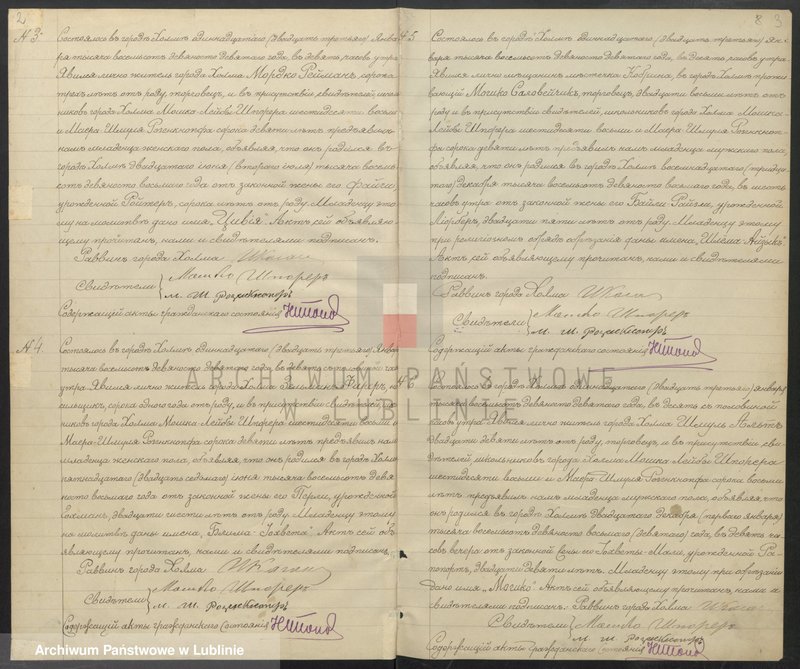 2
№ 3
Состоялось въ городѣ Холмѣ одиннадцатаго (двадцать третьяго) Янва-
ря тысяча восемьсотъ девяносто девятаго года, въ девять часовъ утра.
Явился лично житель города Холма Мордко Рейманъ, сорока
трехъ лѣтъ отъ роду, торговецъ, и въ присутствіи свидѣтелей школь-
никовъ города Холма Мошка Лейбы Шпорера шестидесяти восьми
и Маера Шмуля Розенкнопфа сорока девяти лѣтъ предъявилъ
намъ младенца женскаго пола, объявляя, что онъ родился въ
городѣ Холмѣ двадцатаго іюня (второго іюля) тысяча восемь-
сотъ девяносто восьмаго года отъ законной жены его Файги,
урожденной Рейтеръ, сорока лѣтъ отъ роду. Младенцу это-
му на молитвѣ дано имя „Цивія“. Актъ сей объявляю-
щему прочитанъ, нами и свидѣтелями подписанъ.
Раввинъ города Холма
Свидѣтели Машко Шпореръ
М. Ш. Розенкнопфъ
Содержащій акты гражданскаго состоянія
№ 4
Состоялось въ городѣ Холмѣ одиннадцатаго (двадцать третьяго) Января
тысяча восемьсотъ девяносто девятаго года, въ девять съ половиной час.
утра. Явился лично житель города Холма
сорока одного года отъ роду, и въ присутствіи свидѣтелей школь-
никовъ города Холма Мошка Лейбы Шпорера шестидесяти восьми и
Маера-Шмуля Розенкнопфа сорока девяти лѣтъ предъявилъ намъ
младенца женскаго пола, объявляя, что онъ родился въ городѣ Холмѣ
пятнадцатаго (двадцать седьмаго) іюня тысяча восемьсотъ девя-
носто восьмаго года отъ законной жены его Перли, урожденной
двадцати шести лѣтъ отъ роду. Младенцу этому
на молитвѣ даны имена Актъ сей объ-
являющему прочитанъ, нами и свидѣтелями подписанъ.
Раввинъ города Холма
Свидѣтели Машко Шпореръ
М. Ш. Розенкнопфъ
Содержащій акты гражданскаго состоянія
3
№ 5
Состоялось въ городѣ Холмѣ одиннадцатаго (двадцать третьяго) Ян-
варя тысяча восемьсотъ девяносто девятаго года, въ десять часовъ утра.
Явился лично мѣщанинъ мѣстечка Кобрина, въ городѣ Холмѣ прожи-
вающій Мошко Соловейчикъ, торговецъ, двадцати восьми лѣтъ отъ
роду и въ присутствіи свидѣтелей, школьниковъ города Холма Мошка-
Лейбы Шпорера шестидесяти восьми и Маера Шмуля Розенкноп-
фа сорока девяти лѣтъ, предъявилъ намъ младенца мужскаго пола
объявляя, что онъ родился въ городѣ Холмѣ восемнадцатаго (тридца-
таго) декабря тысяча восемьсотъ девяносто восьмаго года, въ шесть
часовъ утра отъ законной жены его Бейли Рейзи, урожденной
Лорберъ, двадцати пяти лѣтъ отъ роду. Младенцу этому
при религіозномъ обрядѣ обрѣзанія даны имена
Актъ сей объявляющему прочитанъ, нами и свидѣтелями
подписанъ.
Раввинъ города Холма
Свидѣтели Машко Шпореръ
М. Ш. Розенкнопфъ
Содержащій акты гражданскаго состоянія
№ 6
Состоялось въ городѣ Холмѣ одиннадцатаго (двадцать третьяго) января
тысяча восемьсотъ девяносто девятаго года, въ десять съ половиной
часовъ утра. Явился лично житель города Холма
двадцати девяти лѣтъ отъ роду, торговецъ, и въ присутствіи сви-
дѣтелей школьниковъ города Холма Мошка Лейбы Шпорера
шестидесяти восьми и Маера Шмуля Розенкнопфа сорока восьми
лѣтъ предъявилъ намъ младенца мужскаго пола, объявляя что
онъ родился въ городѣ Холмѣ двадцатаго декабря (перваго января)
тысяча восемьсотъ девяносто восьмаго (девятаго) года, въ девять ча-
совъ вечера отъ законной жены его урожденной Ра-
попортъ, двадцати девяти лѣтъ. Младенцу этому при обрѣзаніи
дано имя „Мошко“. Актъ сей объявляющему прочитанъ, нами и
свидѣтелями подписанъ. Раввинъ города Холма
Свидѣтели Машко Шпореръ
М. Ш. Розенкнопфъ
Содержащій акты гражданскаго состоянія
ARCHIWUM PAŃSTWOWE
W LUBLINIE
Archiwum Państwowe w Lublinie